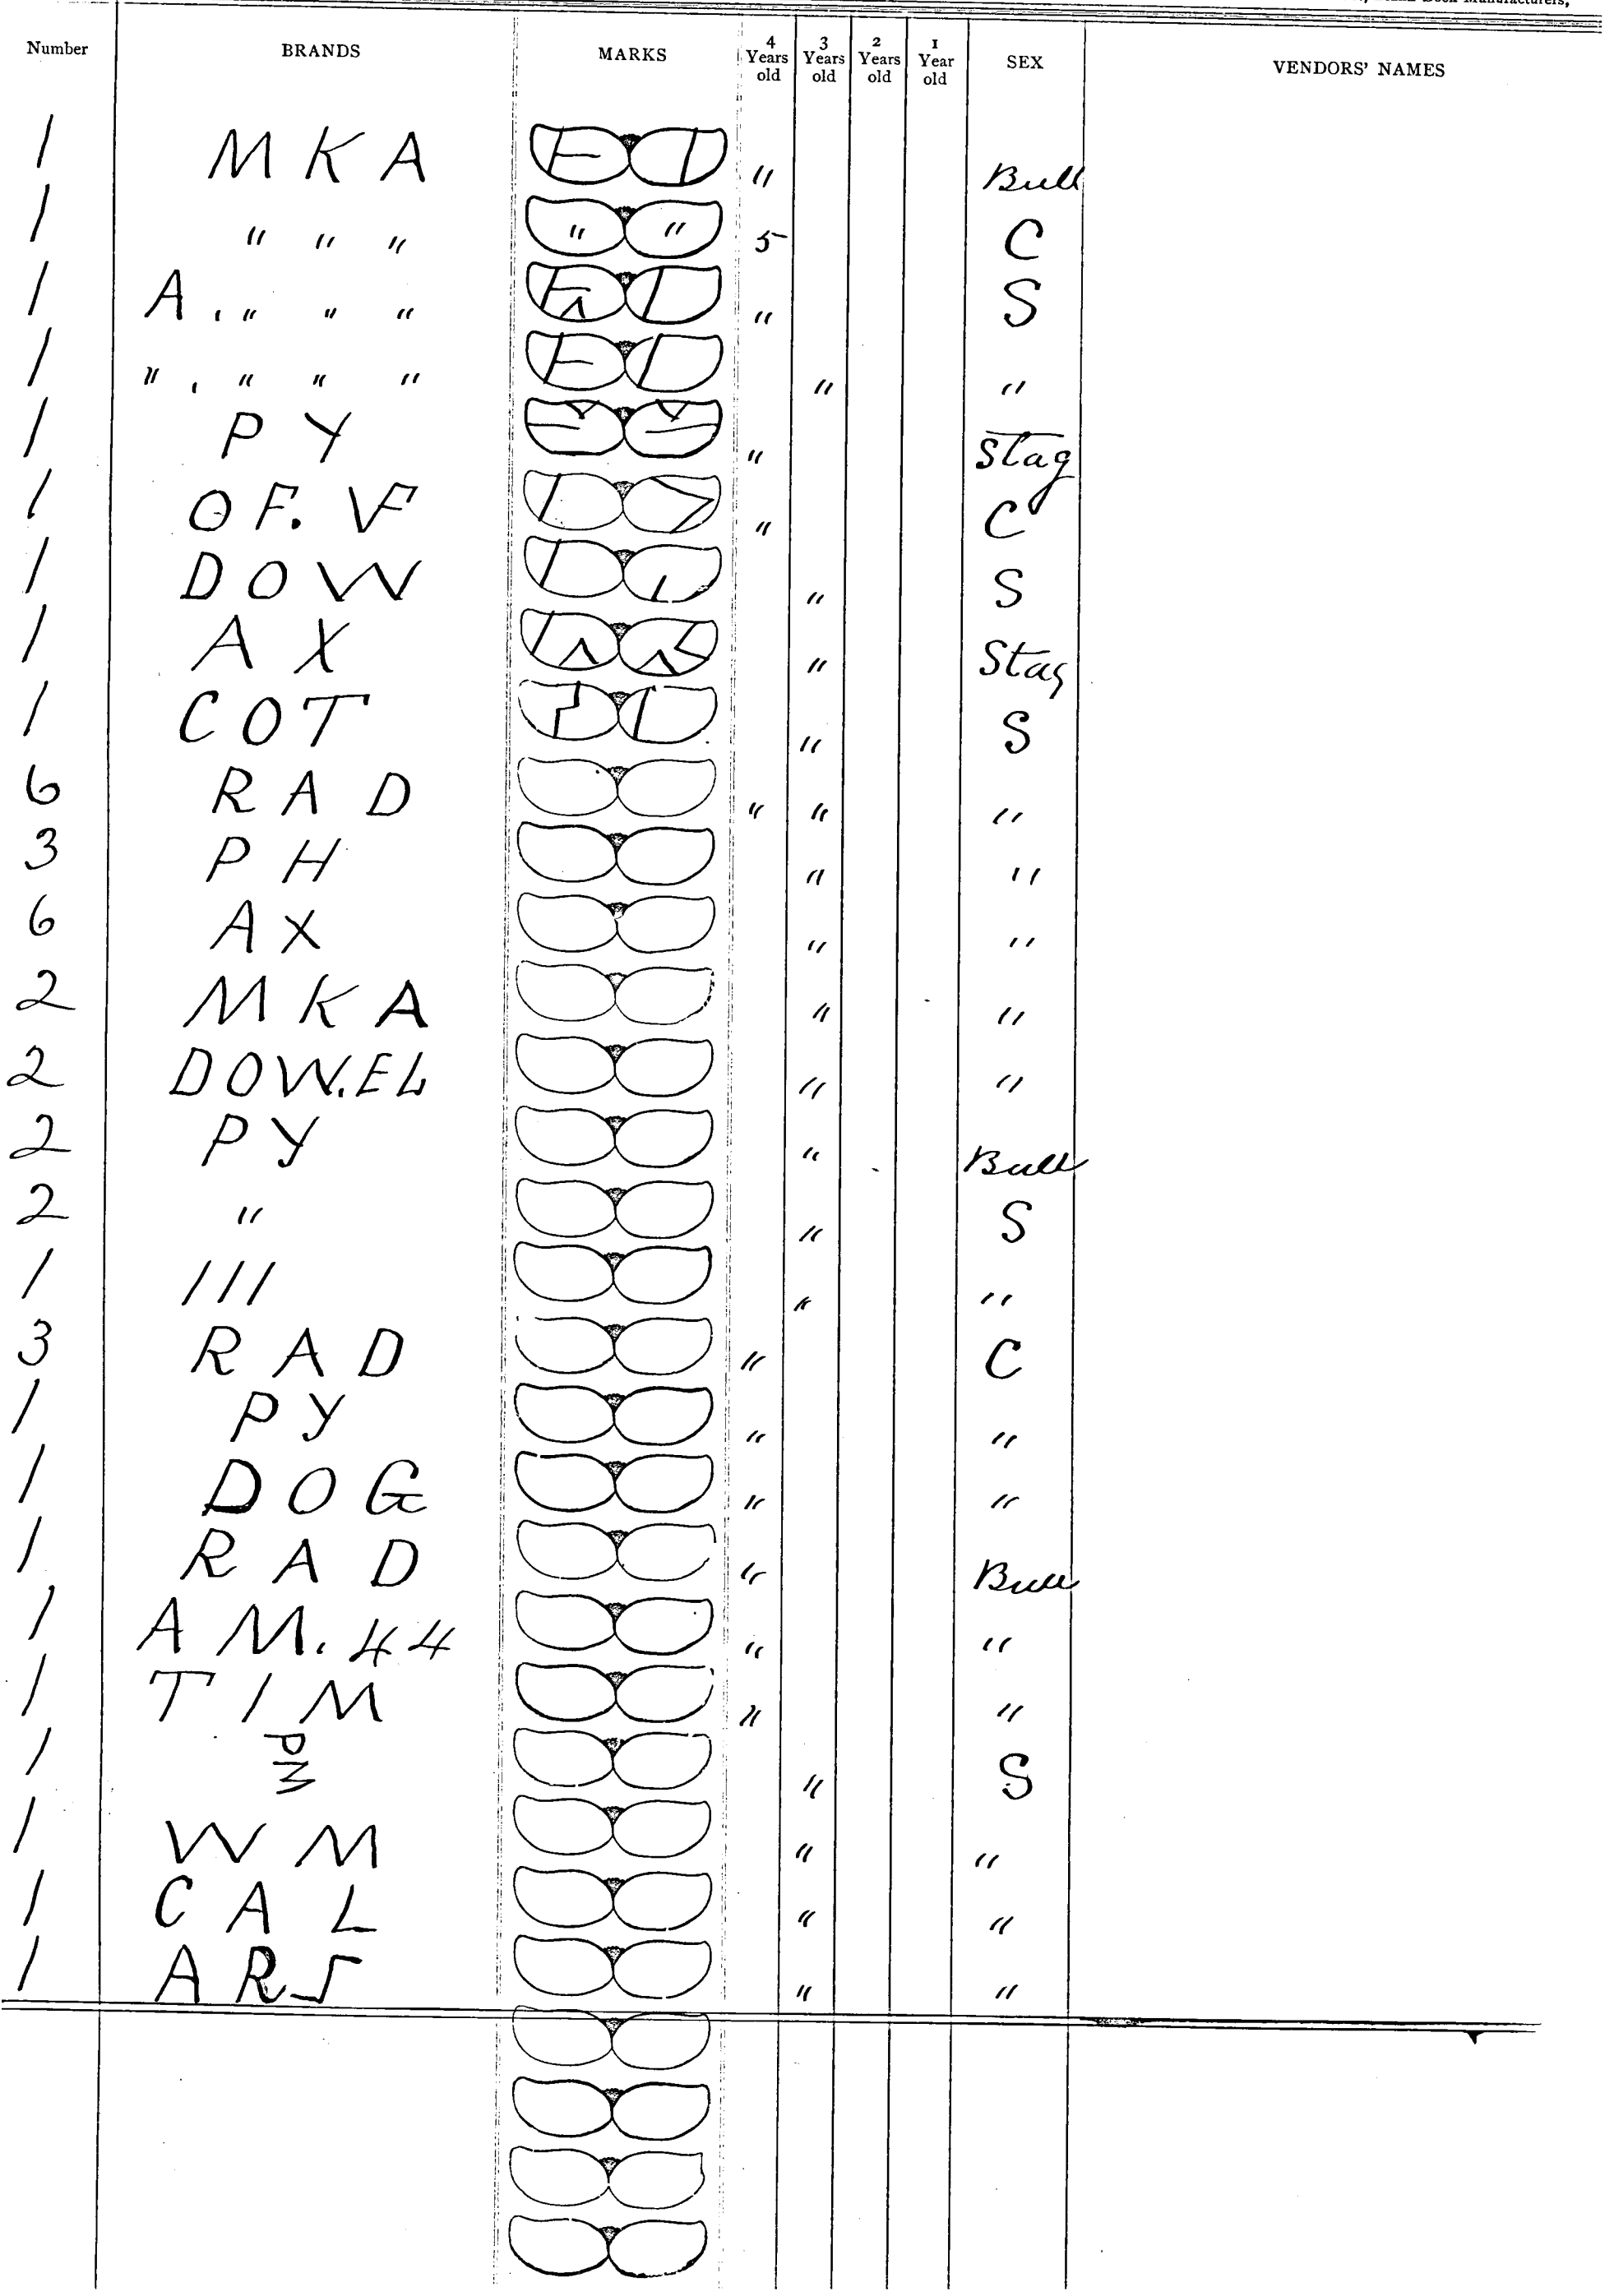 Number BRANDS MARKS 4 Years old 3 Years old 2 Years old 1 Year old SEX VENDORS' NAMES
1 M K A " Bull
1 " " " " " 5 C
1 A . " " " " S
1 " . " " " " "
1 P Y " Stag
1 O F. V F " C
1 D O W " S
1 A X " Stag
1 C O T " S
6 R A D " " "
3 P H " "
6 A X " "
2 M K A " "
2 D O W. E L " "
2 P Y " Bull
2 " " S
1 / / / " "
3 R A D " C
1 P Y " "
1 D O G " "
1 R A D " Bull
1 A M. 4 4 " "
1 T I M " "
1 PM " S
1 W M " "
1 C A L " "
1 A R J " "